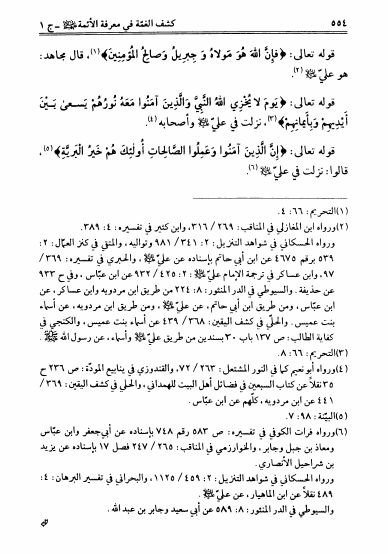 ٥٥٤ ............ كشف الغمّة في معرفة الأئمة ﷺ - ج ١
قوله تعالى: ﴿فَإِنَّ اللهَ هُوَ مَوْلَاهُ وَ جِبْرِيلُ وَصَالِحُ الْمُؤْمِنِينَ﴾(١)، قال مجاهد:
هو عليّ ﷺ(٢).
قوله تعالى: ﴿يَوْمَ لَا يُخْزِي اللهُ النَّبِيَّ وَالَّذِينَ آمَنُوا مَعَهُ نُورُهُمْ يَسعىٰ بَيْنَ
أَيْدِيهِمْ وَبِأَيْمَانِهِمْ﴾(٣)، نزلت في عليّ ﷺ وأصحابه(٤).
قوله تعالى: ﴿إِنَّ الَّذِينَ آمَنُوا وَعَمِلُوا الصَّالِحَاتِ أُولَئِكَ هُمْ خَيْرُ الْبَرِيَّةِ﴾(٥)،
قالوا: نزلت في عليّ ﷺ(٦).
(١) التحريم: ٦٦: ٤.
(٢) ورواه ابن المغازلي في المناقب: ٢٦٩ / ٣١٦، وابن كثير في تفسيره: ٤: ٣٨٩.
ورواه الحسكاني في شواهد التنزيل: ٢: ٣٤١ / ٩٨١ وتواليه، والمتقي في كنز العمّال: ٢:
٥٣٩ برقم ٤٦٧٥ عن ابن أبي حاتم بإسناده عن عليّ ﷺ، والحبري في تفسيره: ٣٦٩ /
٩٧، وابن عساكر في ترجمة الإمام عليّ ﷺ: ٢: ٤٢٥ / ٩٣٢ عن ابن عبّاس، وفي ح ٩٣٣
عن حذيفة. والسيوطي في الدر المنثور: ٨: ٢٢٤ من طريق ابن مردويه وابن عساكر، عن
ابن عبّاس، ومن طريق ابن أبي حاتم، عن عليّ ﷺ، ومن طريق ابن مردويه، عن أسماء
بنت عميس. والحلّي في كشف اليقين: ٣٦٨ / ٤٣٩ عن أسماء بنت عميس، والكنجي في
كفاية الطالب: ص ١٣٧ باب ٣٠ بسندين من طريق عليّ ﷺ وأسماء، عن رسول الله ﷺ
(٣) التحريم: ٦٦: ٨.
(٤) رواه أبو نعيم كما في النور المشتعل: ٢٦٣ / ٧٢، والقندوزي في ينابيع المودّة: ص ٢٣٦ ح
٣٥ نقلاً عن كتاب السبعين في فضائل أهل البيت للهمداني، والحلي في كشف اليقين: ٣٦٩ /
٤٤١ عن ابن مردويه، كلّهم عن ابن عبّاس.
(٥) البيّنة: ٩٨: ٧.
(٦) ورواه فرات الكوفي في تفسيره: ص ٥٨٣ رقم ٧٤٨ بإسناده عن أبي جعفر وابن عبّاس
ومعاذ بن جبل وجابر، والخوارزمي في المناقب: ٢٦٥ / ٢٤٧ فصل ١٧ بإسناده عن يزيد
بن شراحيل الأنصاري.
ورواه الحسكاني في شواهد التنزيل: ٢: ٤٥٩ / ١١٢٥، والبحراني في تفسير البرهان: ٤:
٤٨٩ نقلاً عن ابن الماهيار، عن عليّ ﷺ.
والسيوطي في الدر المنثور: ٨: ٥٨٩ عن أبي سعيد وجابر بن عبد الله.